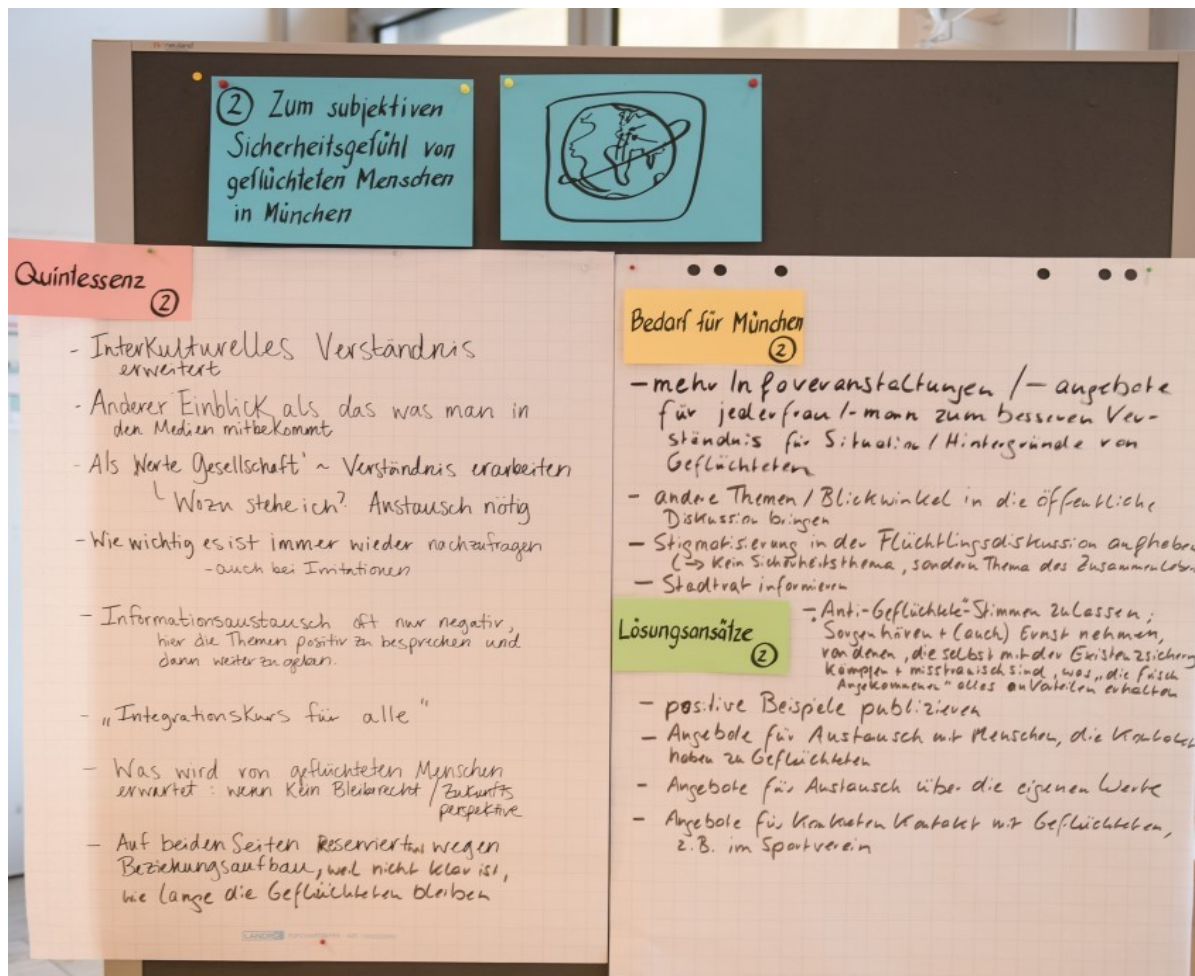 neuland
② Zum subjektiven
Sicherheitsgefühl von
geflüchteten Menschen
in München
Quintessenz
②
- Interkulturelles Verständnis
erweitert
- Anderer Einblick als das was man in
den Medien mitbekommt
- Als Werte Gesellschaft ~ Verständnis erarbeiten
Wozu stehe ich? Austausch nötig
- Wie wichtig es ist immer wieder nachzufragen
- auch bei Irritationen
- Informationsaustausch oft nur negativ,
hier die Themen positiv zu besprechen und
dann weiter zu geben.
- „Integrationskurs für alle"
- Was wird von geflüchteten Menschen
erwartet: wenn kein Bleiberecht / Zukunfts
perspektive
- Auf beiden Seiten Reserviertheit wegen
Beziehungsaufbau, weil nicht klar ist,
wie lange die Geflüchteten bleiben
Bedarf für München
②
- mehr Infoveranstaltungen / - angebote
für jederfrau/-mann zum besseren Ver-
ständnis für Situation / Hintergründe von
Geflüchteten
- andere Themen / Blickwinkel in die öffentliche
Diskussion bringen
- Stigmatisierung in der Flüchtlingsdiskussion aufheben
(→ Kein Sicherheitsthema, sondern Thema des Zusammenleben
- Stadtrat informieren
Lösungsansätze
②
- "Anti-Geflüchtete"-Stimmen zulassen;
Sorgen hören + (auch) Ernst nehmen,
von denen, die selbst mit der Existenzsicherung
kämpfen + misstrauisch sind, was „die frisch
Angekommenen" alles an Vorteilen erhalten
- positive Beispiele publizieren
- Angebote für Austausch mit Menschen, die Kontakt
haben zu Geflüchteten
- Angebote für Austausch über die eigenen Werte
- Angebote für konkreten Kontakt mit Geflüchteten,
z.B. im Sportverein